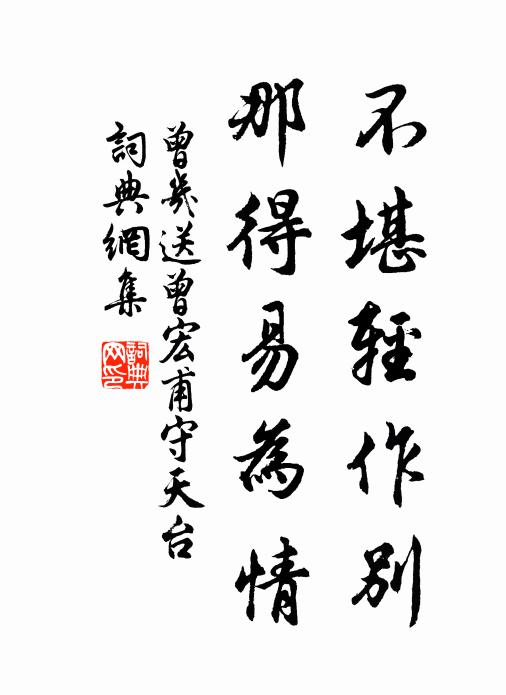 不堪輕作別
那得易為情
曾幾送曾宏甫守天台
詞典網集
詞典網印